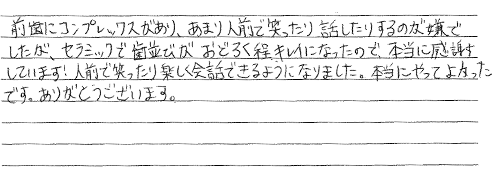 前歯にコンプレックスがあり、あまり人前で笑ったり話したりするのが嫌で
したが、セラミックで歯並びがおどろく程キレイになったので、本当に感謝
しています！人前で笑ったり楽しく会話できるようになりました。本当にやってよかった
です。ありがとうございます。